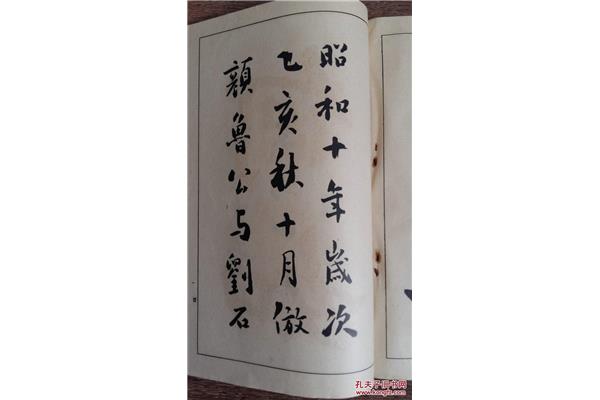 昭和十年歳次
乙亥秋十月倣
顔魯公与劉石
孔夫子旧书网
www.kongfz.com